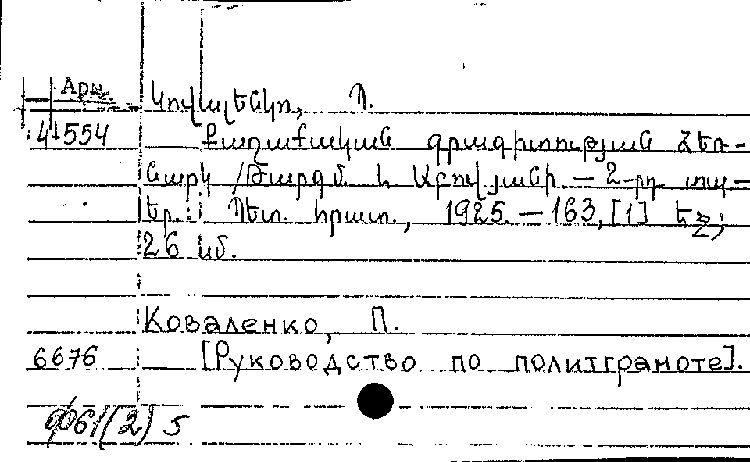 Арм.
Կովալենկո, Պ.
41554 Քաղաքական գրագիտության Ձեռ-
նարկ /Թարգմ. Ն. Աբովյանի. — 2-րդ տպ—
եր.: Պետ. հրատ., 1925. — 163, [1] եջ;
26 սմ.
Коваленко, П.
6676 [Руководство по политграмоте].
ф61(2) 5